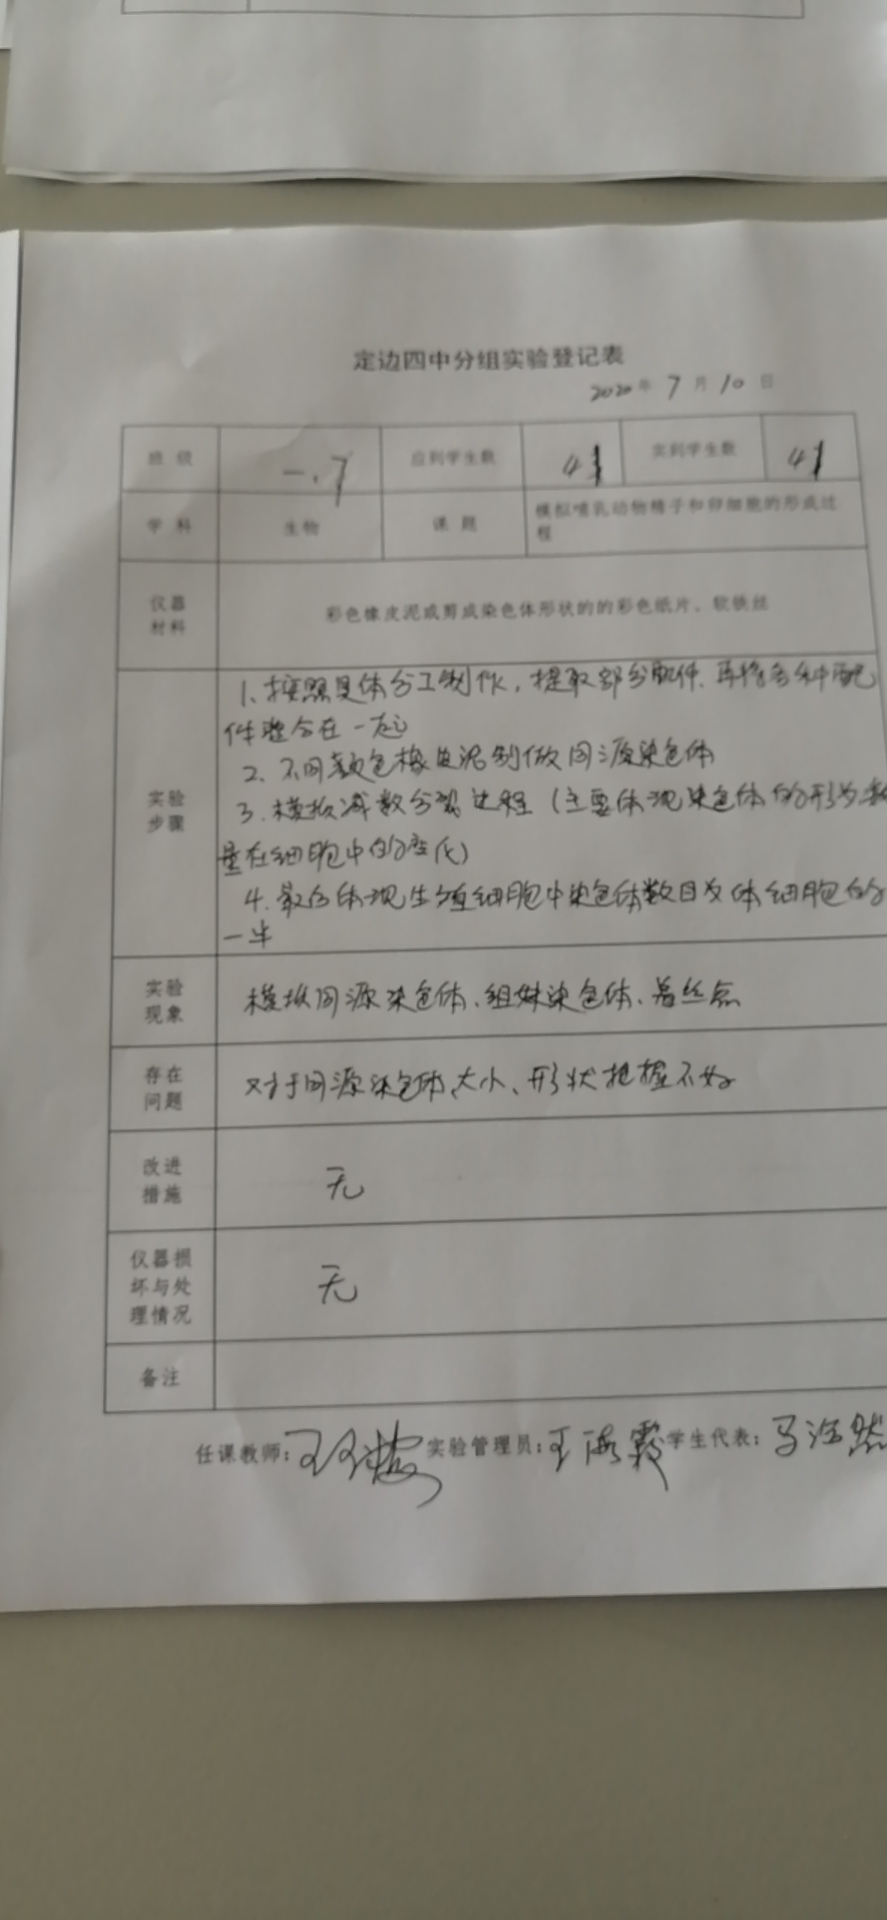 定边四中分组实验登记表
2020年 7月 10日
班级 一.7 应到学生数 41 实到学生数 41
学科 生物 课题 模拟哺乳动物精子和卵细胞的形成过
程
仪器
材料
彩色橡皮泥或剪成染色体形状的的彩色纸片、软铁丝
实验
步骤
1.按照具体分工制作,提取部分配件、再将各种配
件整合在一起
2.不同颜色橡皮泥制做同源染色体
3.模拟减数分裂过程(主要体现染色体的形
量在细胞中的变化)
4.最后体现生殖细胞中染色体数目为体细胞的
一半
实验
现象
模拟同源染色体、组妹染色体、着丝点
存在
问题
对于同源染色体大小、形状把握不好
改进
措施
无
仪器损
坏与处
理情况
无
备注
任课教师: 实验管理员:王海霞 学生代表:马 然